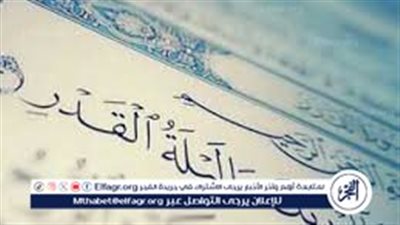 الرحيم
لَيْلَةُ الْقَدْرِ
لمتابعة أهم وآخر الأخبار يرجى الاشتراك في جريدة الفجر Elfagr.org
للإعلان يرجى التواصل عبر Mthabet@elfagr.org
الفجر